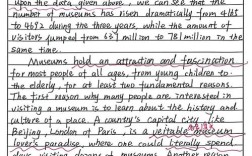 Upon the data given above, we can see that the
number of museums has risen dramatically from 4165
to 4692 during the three years, while the amount of
visitors jumped from 637 million to 781 million in the
same time.
Museums hold an attraction and fascination
for most people of all ages, from young children to
the elderly, for at least two fundamental reasons.
The first reason why many people are interested in
visiting a museum is to learn about the history and
culture of a place. A country's capital city, like
Beijing, London or Paris, is a veritable museum
lover's paradise, where one could literally spend
days visiting dozens of museums. Another reason